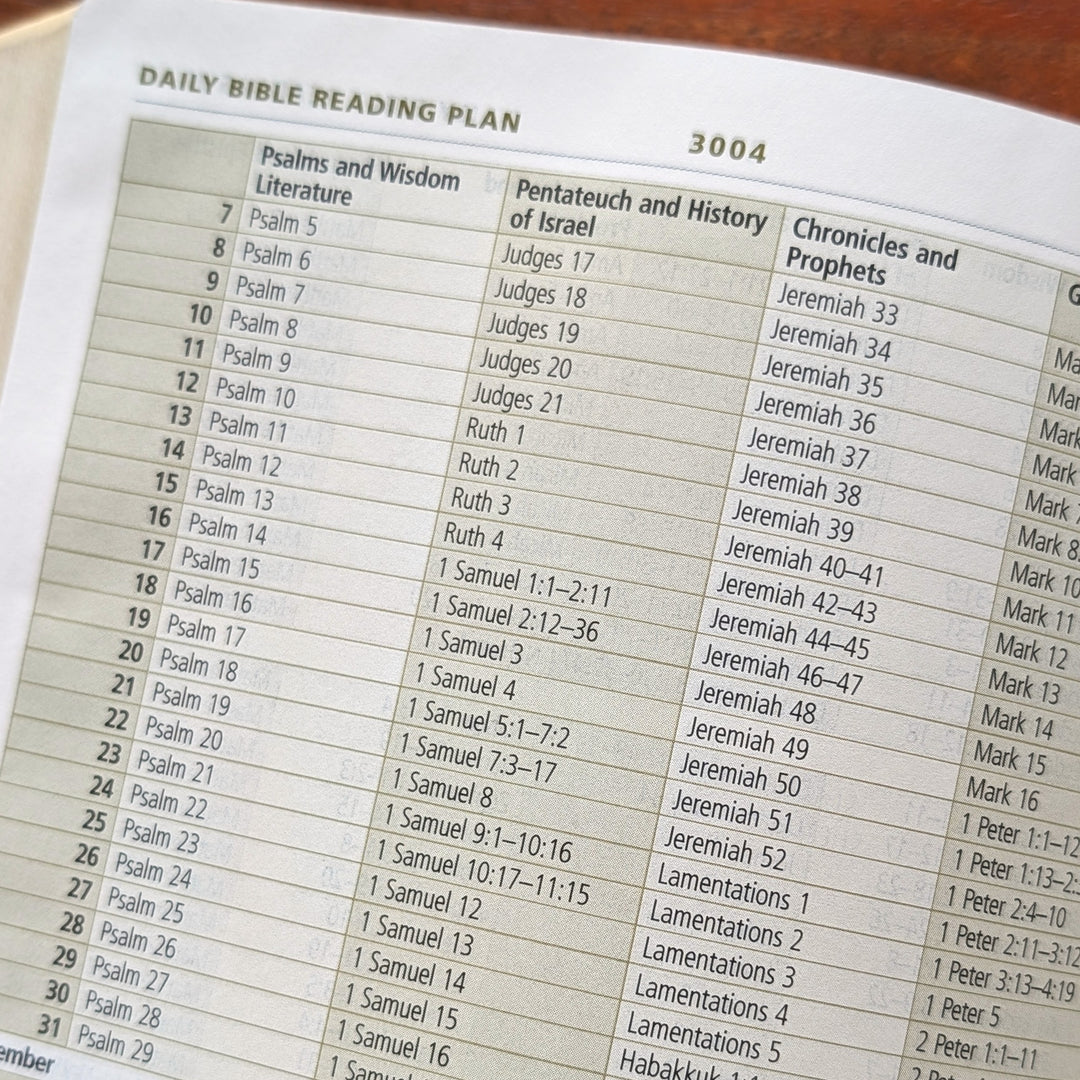 DAILY BIBLE READING PLAN 3004
Psalms and Wisdom Literature Pentateuch and History of Israel Chronicles and Prophets G
7 Psalm 5 Judges 17 Jeremiah 33 Ma
8 Psalm 6 Judges 18 Jeremiah 34 Mar
9 Psalm 7 Judges 19 Jeremiah 35 Mark
10 Psalm 8 Judges 20 Jeremiah 36 Mark
11 Psalm 9 Judges 21 Jeremiah 37 Mark
12 Psalm 10 Ruth 1 Jeremiah 38 Mark 8
13 Psalm 11 Ruth 2 Jeremiah 39 Mark 10
14 Psalm 12 Ruth 3 Jeremiah 40–41 Mark 11
15 Psalm 13 Ruth 4 Jeremiah 42–43 Mark 12
16 Psalm 14 1 Samuel 1:1–2:11 Jeremiah 44–45 Mark 13
17 Psalm 15 1 Samuel 2:12–36 Jeremiah 46–47 Mark 14
18 Psalm 16 1 Samuel 3 Jeremiah 48 Mark 15
19 Psalm 17 1 Samuel 4 Jeremiah 49 Mark 16
20 Psalm 18 1 Samuel 5:1–7:2 Jeremiah 50 1 Peter 1:1–12
21 Psalm 19 1 Samuel 7:3–17 Jeremiah 51 1 Peter 1:13–2:
22 Psalm 20 1 Samuel 8 Jeremiah 52 1 Peter 2:4–10
23 Psalm 21 1 Samuel 9:1–10:16 Lamentations 1 1 Peter 2:11–3:12
24 Psalm 22 1 Samuel 10:17–11:15 Lamentations 2 1 Peter 3:13–4:19
25 Psalm 23 1 Samuel 12 Lamentations 3 1 Peter 5
26 Psalm 24 1 Samuel 13 Lamentations 4 2 Peter 1:1–11
27 Psalm 25 1 Samuel 14 Lamentations 5
28 Psalm 26 1 Samuel 15 Habakkuk
29 Psalm 27 1 Samuel 16
30 Psalm 28 1 Samu
31 Psalm 29
ember